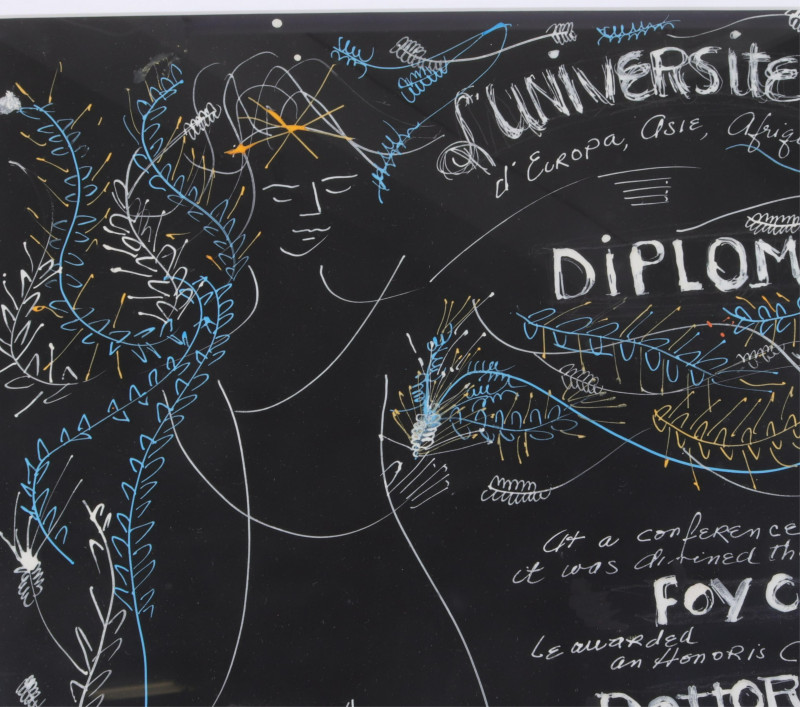 L'UNIVERSITE
d'EUROPA, ASIE, Afriq
DIPLOM
At a CONFERENCE
it was dirined th
FOY C
be awarded
an HONORIS C
DOTTOR